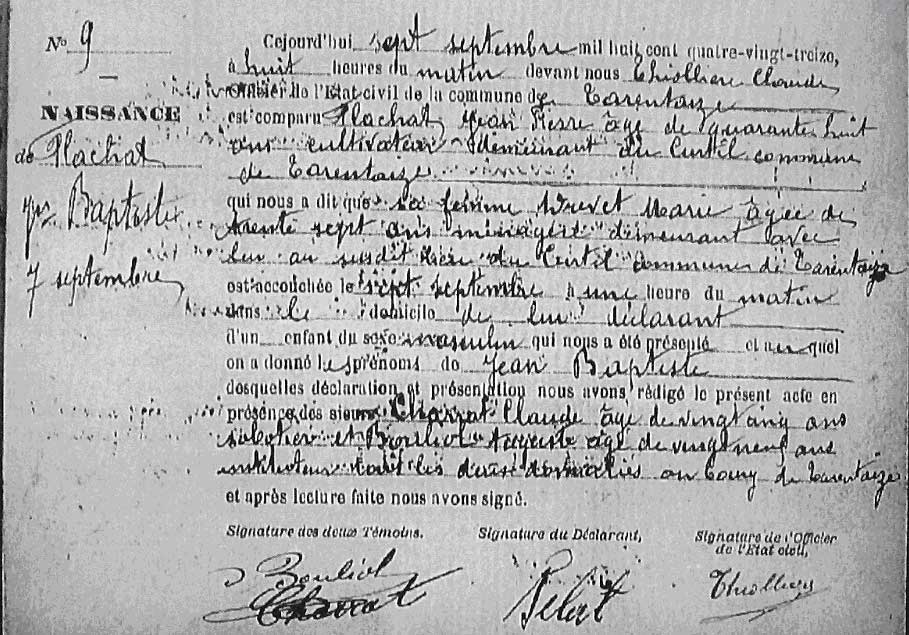 N° 9
NAISSANCE
de Plachat
Jn Baptiste
7 septembre
Cejourd'hui sept septembre mil huit cent quatre-vingt-treize,
à huit heures du matin devant nous Thiollière Claude
Officier de l'Etat civil de la commune de Tarentaize
est comparu Plachat Jean Pierre âgé de quarante huit
ans cultivateur demeurant au Curtil commune
de Tarentaize
qui nous a dit que sa femme Marie âgée de
trente sept ans ménagère demeurant avec
lui au susdit lieu du Curtil commune de Tarentaize
est accouchée le sept septembre à une heure du matin
dans le domicile de lui déclarant
d'un enfant du sexe masculin qui nous a été présenté et auquel
on a donné les prénoms de Jean Baptiste
desquelles déclaration et présentation nous avons rédigé le présent acte en
présence des sieurs Charrat Claude âgé de vingt cinq ans
sabotier et Bouliol Auguste âgé de vingt neuf ans
instituteur tous les deux domiciliés au bourg de Tarentaize
et après lecture faite nous avons signé.
Signature des deux Témoins. Signature du Déclarant, Signature de l'Officier
de l'Etat civil,
Bouliol
Charrat
Thiolliere